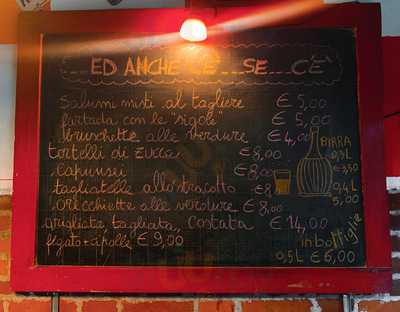 ED ANCHE C'E' ... SE C'E'
Salumi misti al tagliere € 5,00
fartada con le "sigole" € 5,00
bruschette alle verdure € 4,00
tortelli di zucca € 8,00
capunsei € 8,00
tagliatelle allo stracotto €8
orecchiette alle verdure € 8,00
grigliata, tagliata, costata € 14,00
fegato + cipolle € 9,00
BIRRA
0,3L
€ 3,50
0,4L
5,00
in bottiglie
0,5L € 6,00